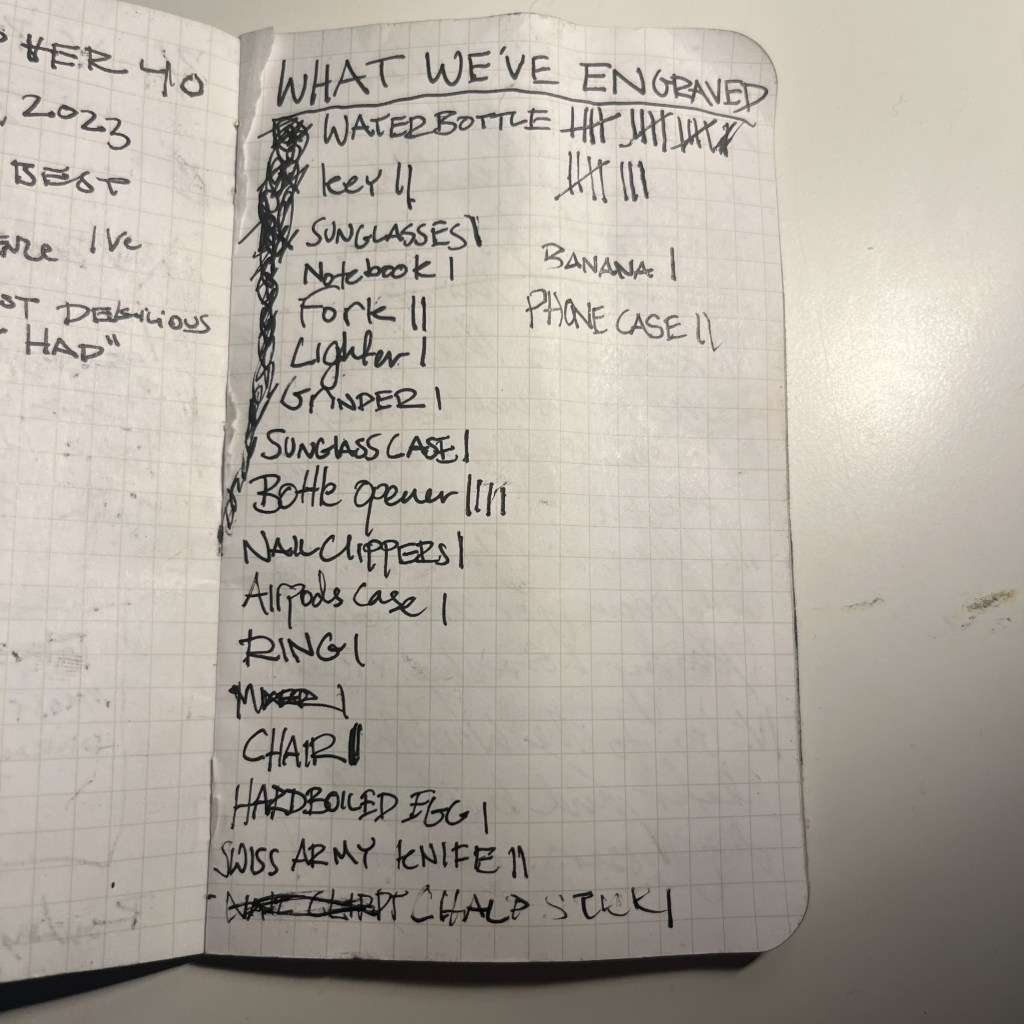 VER 40
2023
BEST
I've
DELICIOUS
HAD"
WHAT WE'VE ENGRAVED
WATER BOTTLE |||| |||| ||||
|||| |||
key ||
SUNGLASSES |
Notebook |
Fork ||
Lighter |
GRINDER |
SUNGLASS CASE |
Bottle opener ||||
NAIL CLIPPERS |
Airpods case |
RING |
|
CHAIR |
HARDBOILED EGG |
SWISS ARMY KNIFE ||
|
BANANA |
PHONE CASE ||